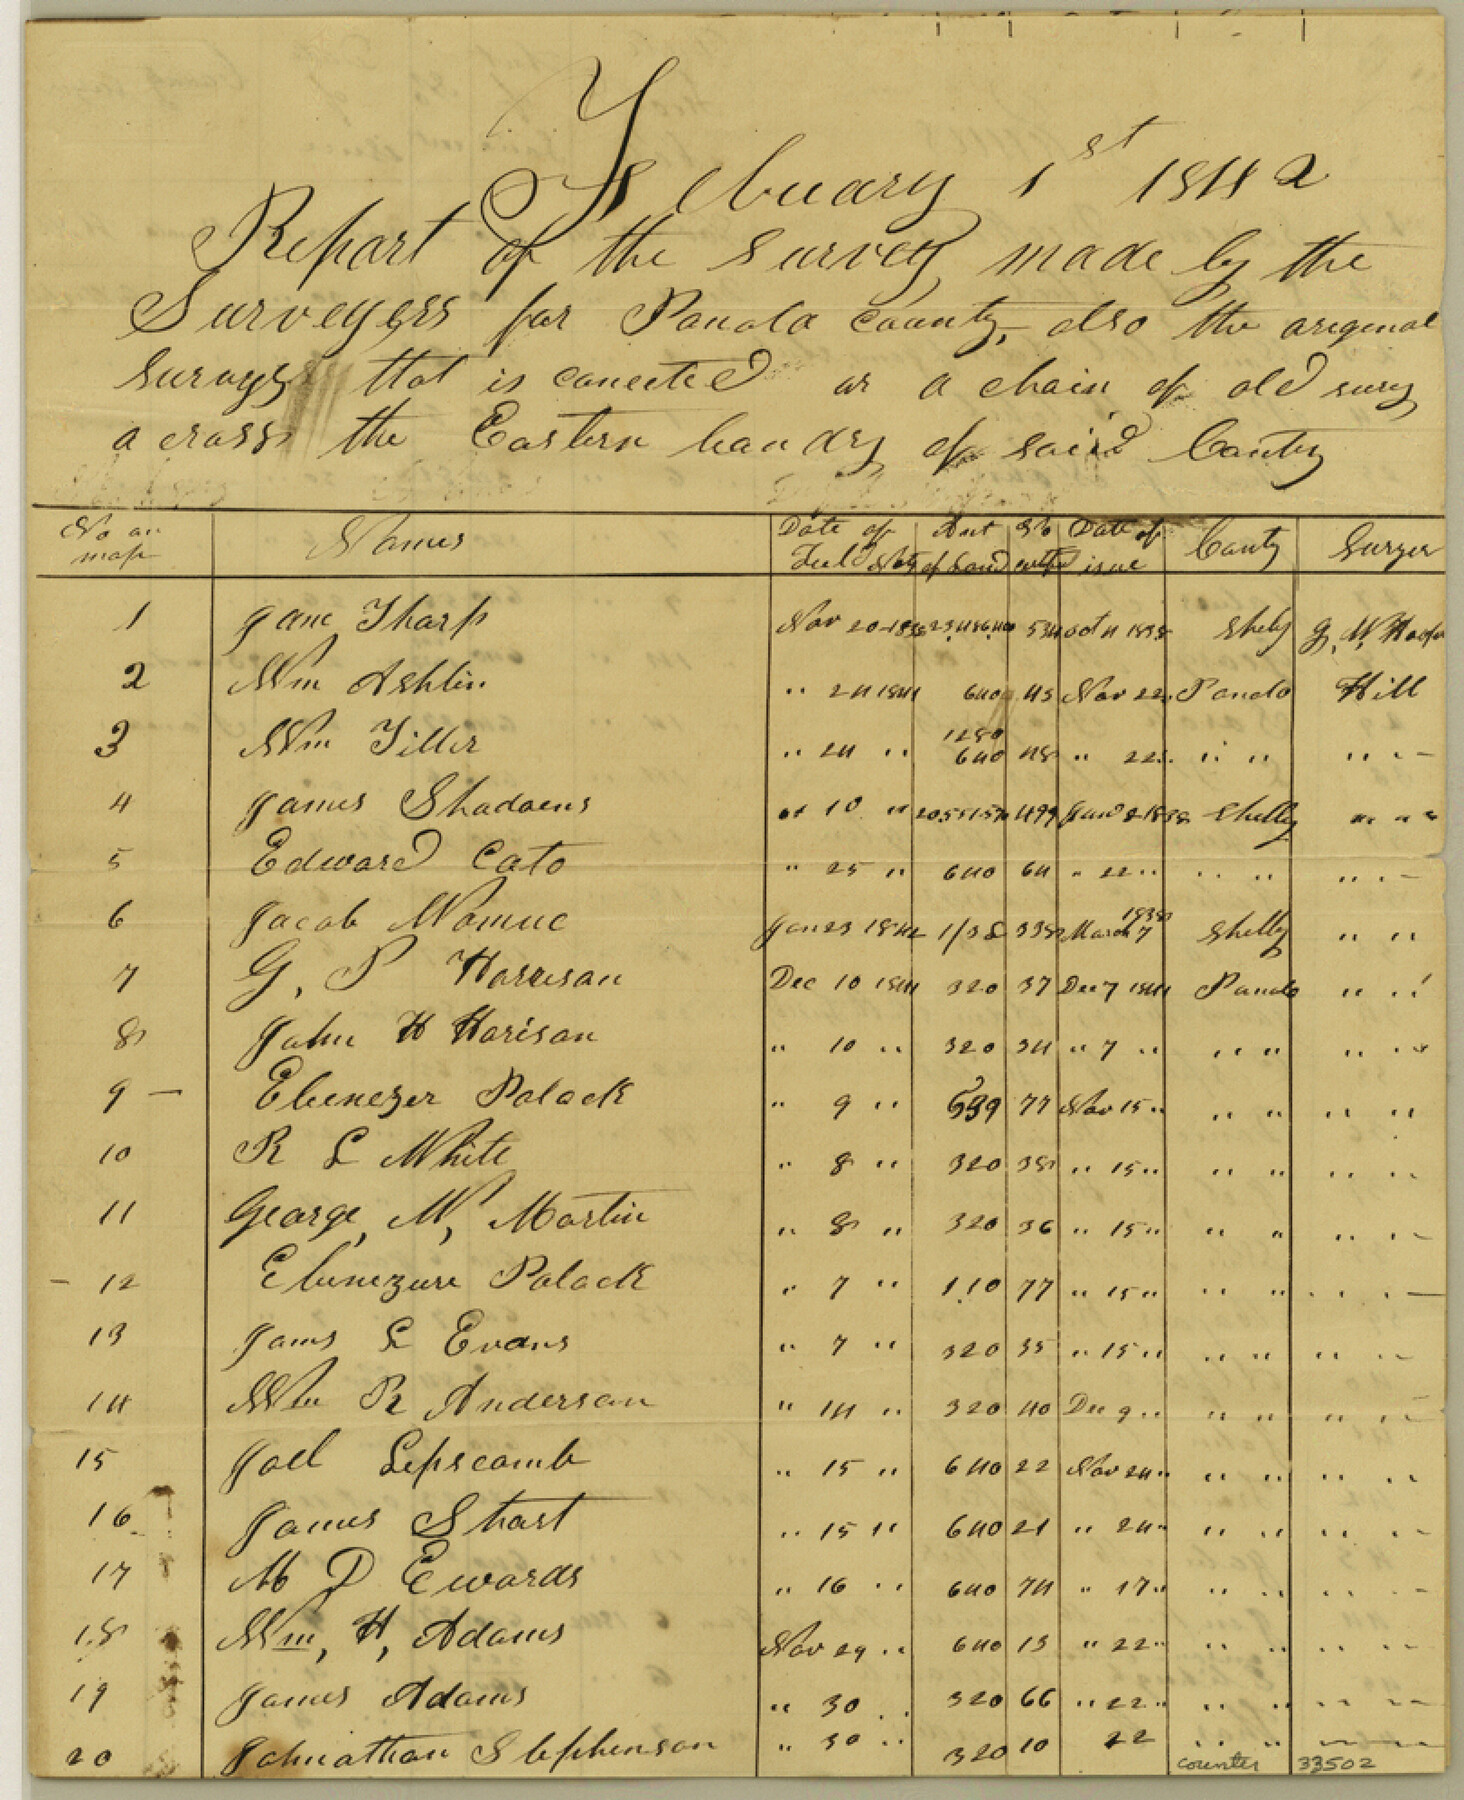 Febuary 1st 1842
Report of the Survey made by the
Surveyers for Panola County, also the original
Surveys that is conected or a chain of old survy
a cross the Eastern boundry of said County
No on map Names Date of Field Nots Amt of Land No certfi Date of isue County Surver
1 Jane Tharp Nov 20 1838 534 oct 11 1838 Shelby G. W. Hooper
2 Wm Ashlin " 24 1841 640 45 Nov 22 Panola Hill
3 Wm Tiller " 24 " 1280 640 48 " 22 " " " "
4 James Shadoens " 10 " 499 Jan 8 1838 Shelby " "
5 Edward Cato " 25 " 640 64 " 22 " " " " "
6 Jacob Womuc Jan 23 1842 1/3 L 338 March 7 1838 Shelby " "
7 G. P Harrison Dec 10 1841 320 37 Dec 7 1841 Panola " "
8 John H Harison " 10 " 320 34 " 7 " " " " "
9 — Ebenezer Polack " 9 " 539 77 Nov 15 " " " " "
10 R L White " 8 " 320 38 " 15 " " " " "
11 George, W, Martin " 8 " 320 36 " 15 " " " " "
– 12 Ebenezure Polack " 7 " 110 77 " 15 " " " " "
13 Jams L Evans " 7 " 320 35 " 15 " " " " "
14 Wm R Anderson " 14 " 320 40 Dec 9 " " " " "
15 Joel Lepscomb " 15 " 640 22 Nov 24 " " " " "
16 James Strart " 15 " 640 21 " 24 " " " " "
17 M D Ewards " 16 " 640 74 " 17 " " " " "
18 Wm, H, Adams Nov 29 " 640 13 " 22 " " " " "
19 James Adams " 30 " 320 66 " 22 " " " " "
20 Johnathan Stephenson " 30 " 320 10 22 " " " "
counter 33502